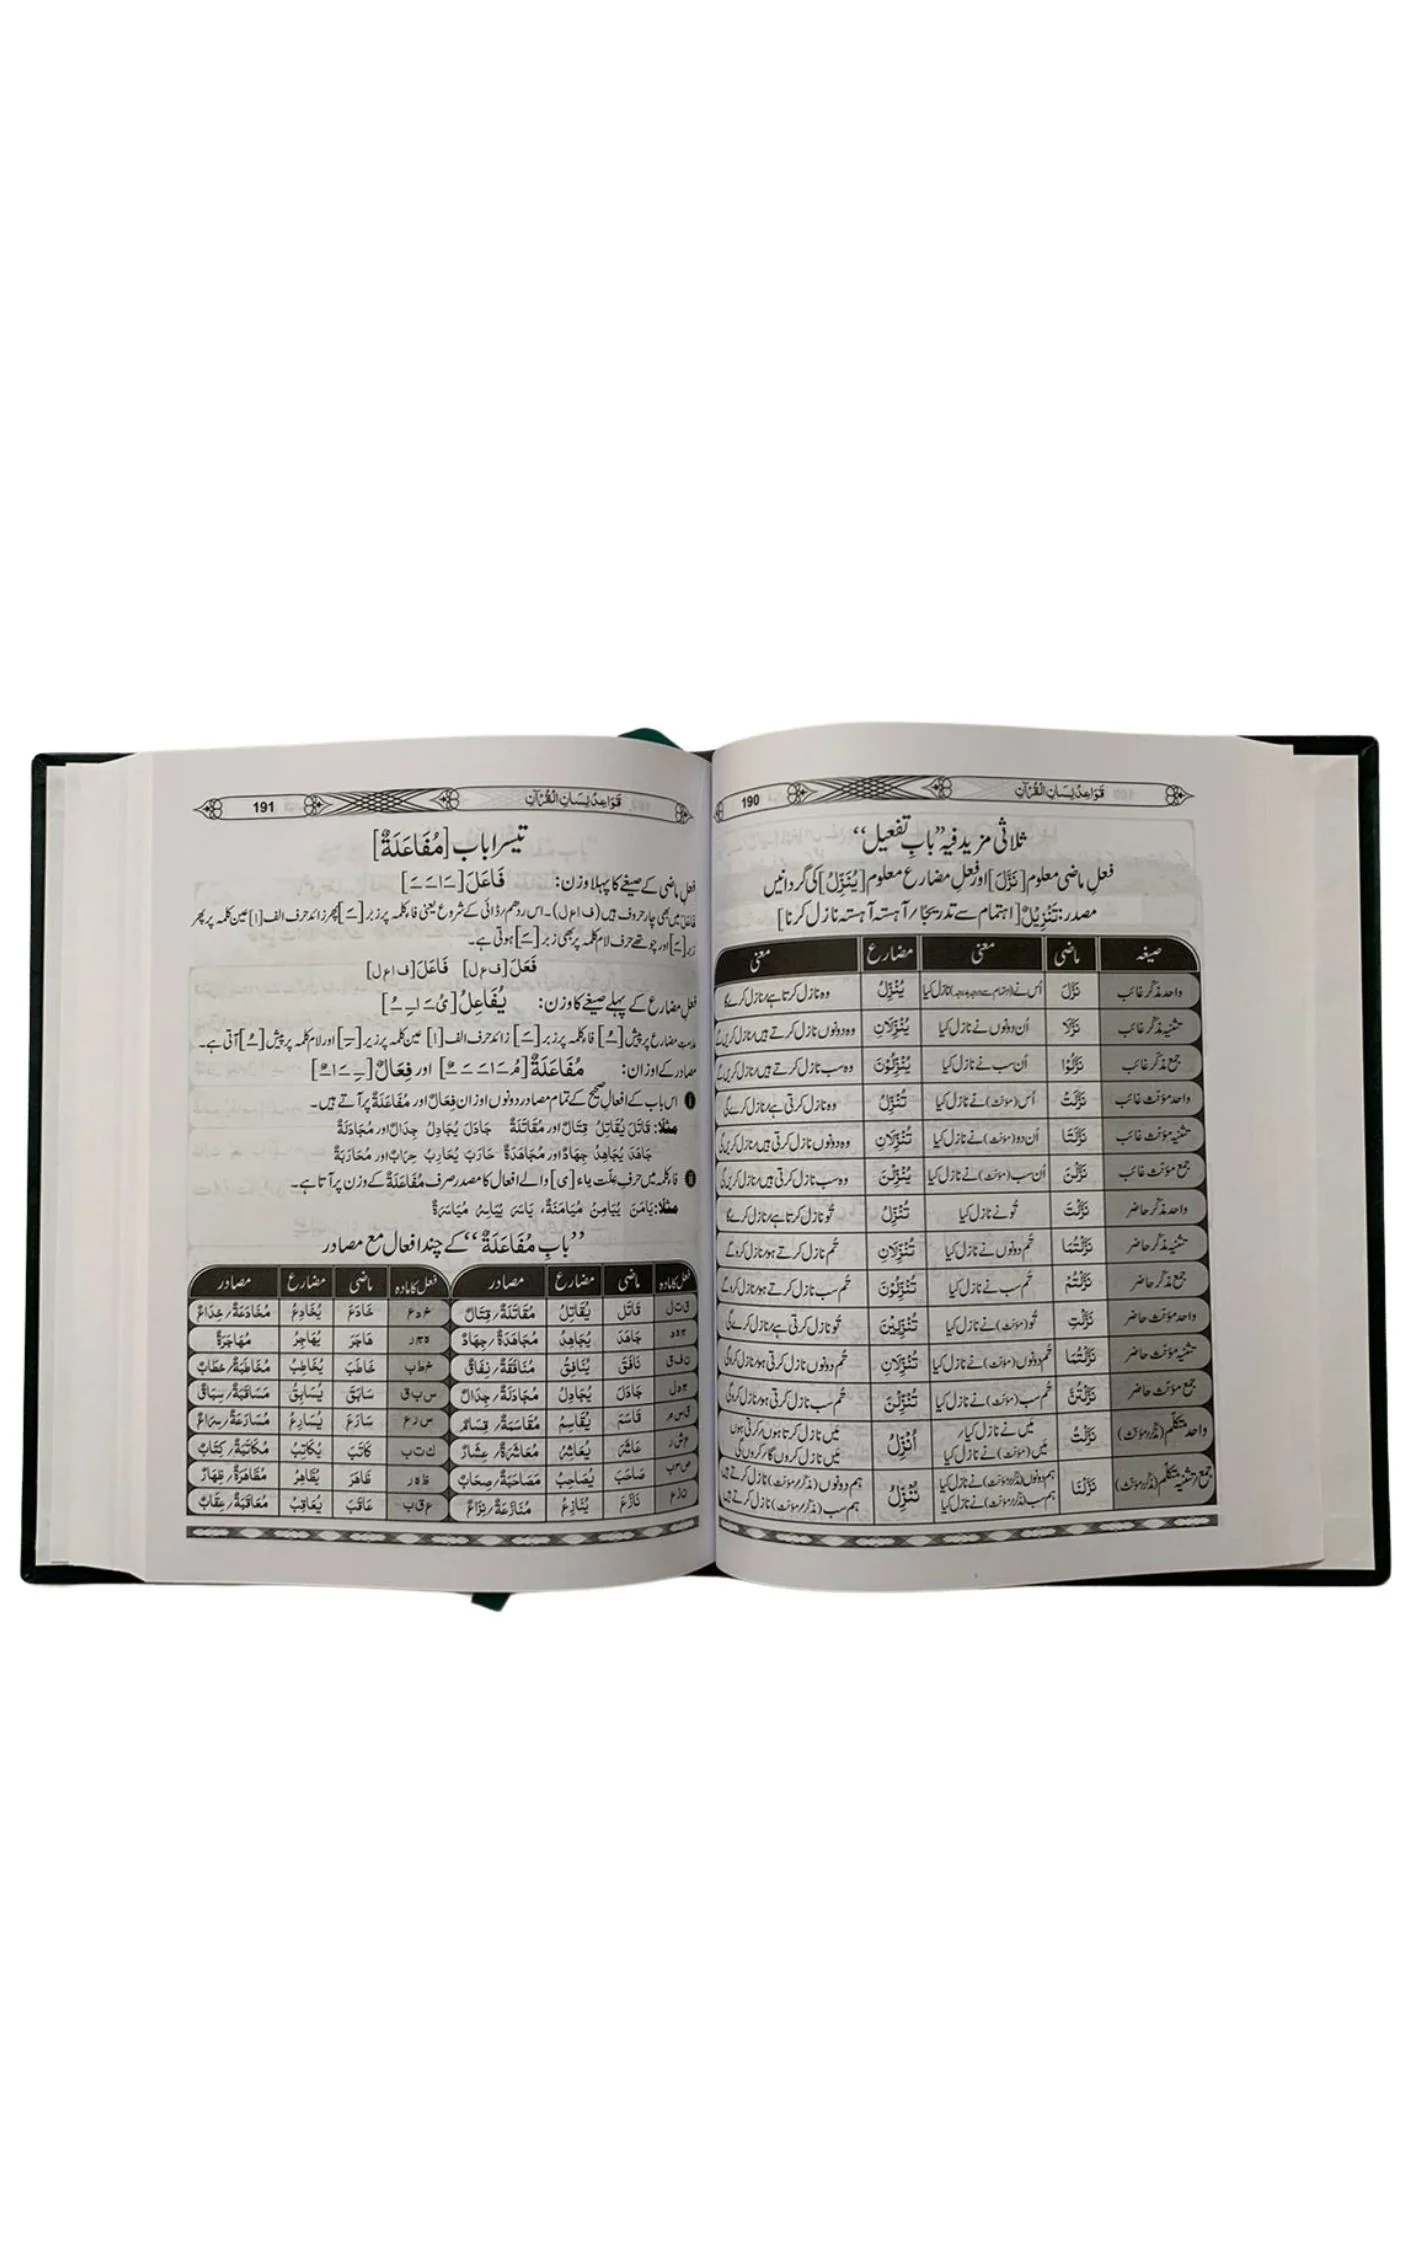 190 قَوَاعِدُ لِسَانِ الْقُرْآن
ثلاثی مزید فیہ ”بابِ تفعیل“
فعل ماضی معلوم [نَزَّلَ] اور فعل مضارع معلوم [یُنَزِّلُ] کی گردانیں
مصدر: تَنْزِیْلٌ [اہتمام سے تدریجًا / آہستہ آہستہ نازل کرنا]
صیغہ ماضی معنی مضارع معنی
واحد مذکر غائب نَزَّلَ اُس نے نازل کیا یُنَزِّلُ وہ نازل کرتا ہے/نازل کرے گا
تثنیہ مذکر غائب نَزَّلَا اُن دونوں نے نازل کیا یُنَزِّلَانِ وہ دونوں نازل کرتے ہیں/نازل کریں گے
جمع مذکر غائب نَزَّلُوْا اُن سب نے نازل کیا یُنَزِّلُوْنَ وہ سب نازل کرتے ہیں/نازل کریں گے
واحد مؤنث غائب نَزَّلَتْ اُس (مؤنث) نے نازل کیا تُنَزِّلُ وہ نازل کرتی ہے/نازل کرے گی
تثنیہ مؤنث غائب نَزَّلَتَا اُن دو (مؤنث) نے نازل کیا تُنَزِّلَانِ وہ دونوں نازل کرتی ہیں/نازل کریں گی
جمع مؤنث غائب نَزَّلْنَ اُن سب (مؤنث) نے نازل کیا یُنَزِّلْنَ وہ سب نازل کرتی ہیں/نازل کریں گی
واحد مذکر حاضر نَزَّلْتَ تُو نے نازل کیا تُنَزِّلُ تُو نازل کرتا ہے/نازل کرے گا
تثنیہ مذکر حاضر نَزَّلْتُمَا تُم دونوں نے نازل کیا تُنَزِّلَانِ تُم نازل کرتے ہو/نازل کرو گے
جمع مذکر حاضر نَزَّلْتُمْ تُم سب نے نازل کیا تُنَزِّلُوْنَ تُم سب نازل کرتے ہو/نازل کرو گے
واحد مؤنث حاضر نَزَّلْتِ تُو (مؤنث) نے نازل کیا تُنَزِّلِیْنَ تُو نازل کرتی ہے/نازل کرے گی
تثنیہ مؤنث حاضر نَزَّلْتُمَا تُم دونوں (مؤنث) نے نازل کیا تُنَزِّلَانِ تُم دونوں نازل کرتی ہو/نازل کرو گی
جمع مؤنث حاضر نَزَّلْتُنَّ تُم سب (مؤنث) نے نازل کیا تُنَزِّلْنَ تُم سب نازل کرتی ہو/نازل کرو گی
واحد متکلم (مذکر/مؤنث) نَزَّلْتُ مَیں نے نازل کیا/ مَیں (مؤنث) نے نازل کیا اُنَزِّلُ مَیں نازل کرتا ہوں/کرتی ہوں مَیں نازل کروں گا/کروں گی
جمع/تثنیہ متکلم (مذکر/مؤنث) نَزَّلْنَا ہم دونوں (مذکر/مؤنث) نے نازل کیا ہم سب (مذکر/مؤنث) نے نازل کیا نُنَزِّلُ ہم دونوں (مذکر/مؤنث) نازل کرتے ہیں ہم سب (مذکر/مؤنث) نازل کرتے ہیں
191 قَوَاعِدُ لِسَانِ الْقُرْآن
تیسرا باب [مُفَاعَلَةٌ]
فعل ماضی کے صیغے کا پہلا وزن: فَاعَلَ [ـَ ا ـَ ـَ]
فَاعَلَ میں بھی چار حروف ہیں (ف ا ع ل)۔ اس ردھم/ڈائی کے شروع یعنی فاء کلمہ پر زبر [ـَ] پھر زائد حرف الف [ا] عین کلمہ پر پھر
زبر [ـَ] اور چوتھے حرف لام کلمہ پر بھی زبر [ـَ] ہوتی ہے۔
فَعَلَ [ف ع ل] فَاعَلَ [ف ا ع ل]
فعل مضارع کے پہلے صیغے کا وزن: یُفَاعِلُ [یُ ـَ ا ـِ ـُ]
علامتِ مضارع پر پیش [ـُ] فاء کلمہ پر زبر [ـَ] زائد حرف الف [ا] عین کلمہ پر زیر [ـِ] اور لام کلمہ پر پیش [ـُ] آتی ہے۔
مصادر کے اوزان: مُفَاعَلَةٌ [مُ ـَ ا ـَ ـَ ـٌ] اور فِعَالٌ [ـِ ـَ ا ـٌ]
i اس باب کے افعالِ صحیح کے تمام مصادر دونوں اوزان فِعَالٌ اور مُفَاعَلَةٌ پر آتے ہیں۔
مثلًا: قَاتَلَ یُقَاتِلُ قِتَالٌ اور مُقَاتَلَةٌ جَادَلَ یُجَادِلُ جِدَالٌ اور مُجَادَلَةٌ
جَاهَدَ یُجَاهِدُ جِهَادٌ اور مُجَاهَدَةٌ حَارَبَ یُحَارِبُ حِرَابٌ اور مُحَارَبَةٌ
ii فاء کلمہ میں حرفِ علّت یاء [ی] والے افعال کا مصدر صرف مُفَاعَلَةٌ کے وزن پر آتا ہے۔
مثلًا: یَامَنَ یُیَامِنُ مُیَامَنَةٌ، یَاسَرَ یُیَاسِرُ مُیَاسَرَةٌ
”بابِ مُفَاعَلَةٌ“ کے چند افعال مع مصادر
فعل کا مادہ ماضی مضارع مصادر فعل کا مادہ ماضی مضارع مصادر
ق ت ل قَاتَلَ یُقَاتِلُ مُقَاتَلَةٌ/قِتَالٌ خ د ع خَادَعَ یُخَادِعُ مُخَادَعَةٌ/خِدَاعٌ
ج ه د جَاهَدَ یُجَاهِدُ مُجَاهَدَةٌ/جِهَادٌ ه ج ر هَاجَرَ یُهَاجِرُ مُهَاجَرَةٌ
ن ف ق نَافَقَ یُنَافِقُ مُنَافَقَةٌ/نِفَاقٌ خ ط ب خَاطَبَ یُخَاطِبُ مُخَاطَبَةٌ/خِطَابٌ
ج د ل جَادَلَ یُجَادِلُ مُجَادَلَةٌ/جِدَالٌ س ب ق سَابَقَ یُسَابِقُ مُسَابَقَةٌ/سِبَاقٌ
ق س م قَاسَمَ یُقَاسِمُ مُقَاسَمَةٌ/قِسَامٌ س ر ع سَارَعَ یُسَارِعُ مُسَارَعَةٌ/سِرَاعٌ
ع ش ر عَاشَرَ یُعَاشِرُ مُعَاشَرَةٌ/عِشَارٌ ك ت ب كَاتَبَ یُكَاتِبُ مُكَاتَبَةٌ/كِتَابٌ
ص ح ب صَاحَبَ یُصَاحِبُ مُصَاحَبَةٌ/صِحَابٌ ظ ه ر ظَاهَرَ یُظَاهِرُ مُظَاهَرَةٌ/ظِهَارٌ
ن ز ع نَازَعَ یُنَازِعُ مُنَازَعَةٌ/نِزَاعٌ ع ق ب عَاقَبَ یُعَاقِبُ مُعَاقَبَةٌ/عِقَابٌ